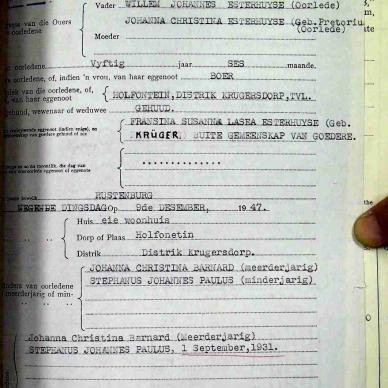 Vader WILLEM JOHANNES ESTERHUYSE (Oorlede)
name van die Ouers
oorledene
JOHANNA CHRISTINA ESTERHUYSE (Geb.Pretoriu
(Oorlede)
Moeder
oorledene Vyftig jaar SES maande.
oorledene, of, indien 'n vrou, van haar eggenoot BOER
van die oorledene, of,
van haar eggenoot HOLFONTEIN,DISTRIK KRUGERSDORP,TVL.
gehud, wewenaar of weduwee GEHUUD.
FRANSINA SUSANNA LASEA ESTERHUYSE (Geb.
KRÜGER, BUITE GEMEENSKAP VAN GOEDERE.
..............
RUSTENBURG
DINGSDAG op 9de DESEMBER, 1947.
Huis eie woonhuis
Dorp of Plaas Holfonetin
Distrik Distrik Krugersdorp.
JOHANNA CHRISTINA BARNARD (meerderjarig)
van oorledene
meerderjarig of min-
STEPHANUS JOHANNES PAULUS (minderjarig)
Johanna Christina Barnard (Meerderjarig)
STEPHANUS JOHANNES PAULUS, 1 September,1931.